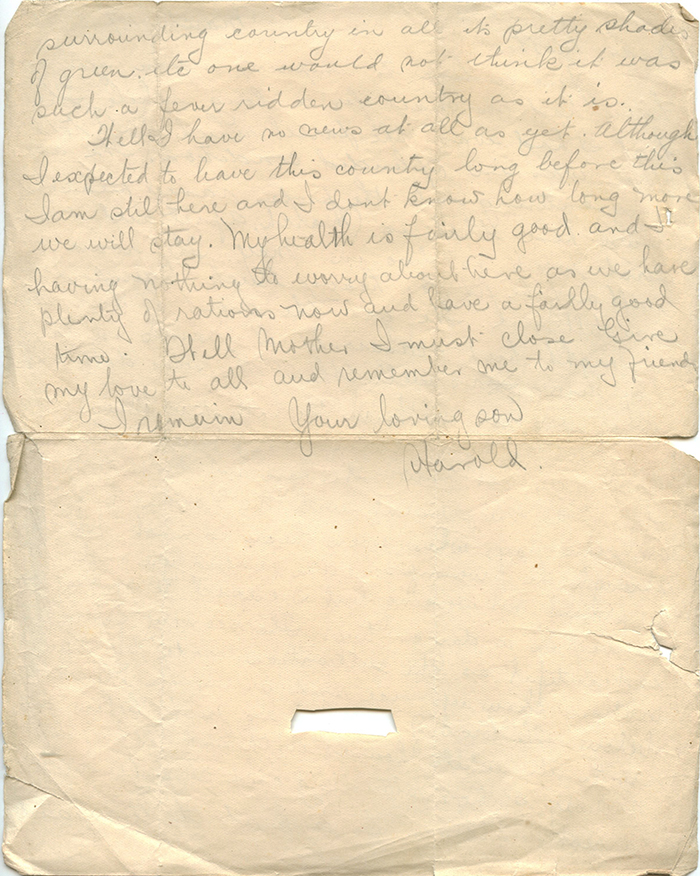 surrounding country in all its pretty shades
of green. etc one would not think it was
such a fever ridden country as it is.
Well I have no news at all as yet. Although
I expected to leave this country long before this
I am still here and I dont know how long more
we will stay. My health is fairly good. and I
having nothing to worry about here as we have
plenty of rations now and have a fairly good
time. Well Mother I must close Give
my love to all and remember me to my friends
I remain Your loving son
Harold.